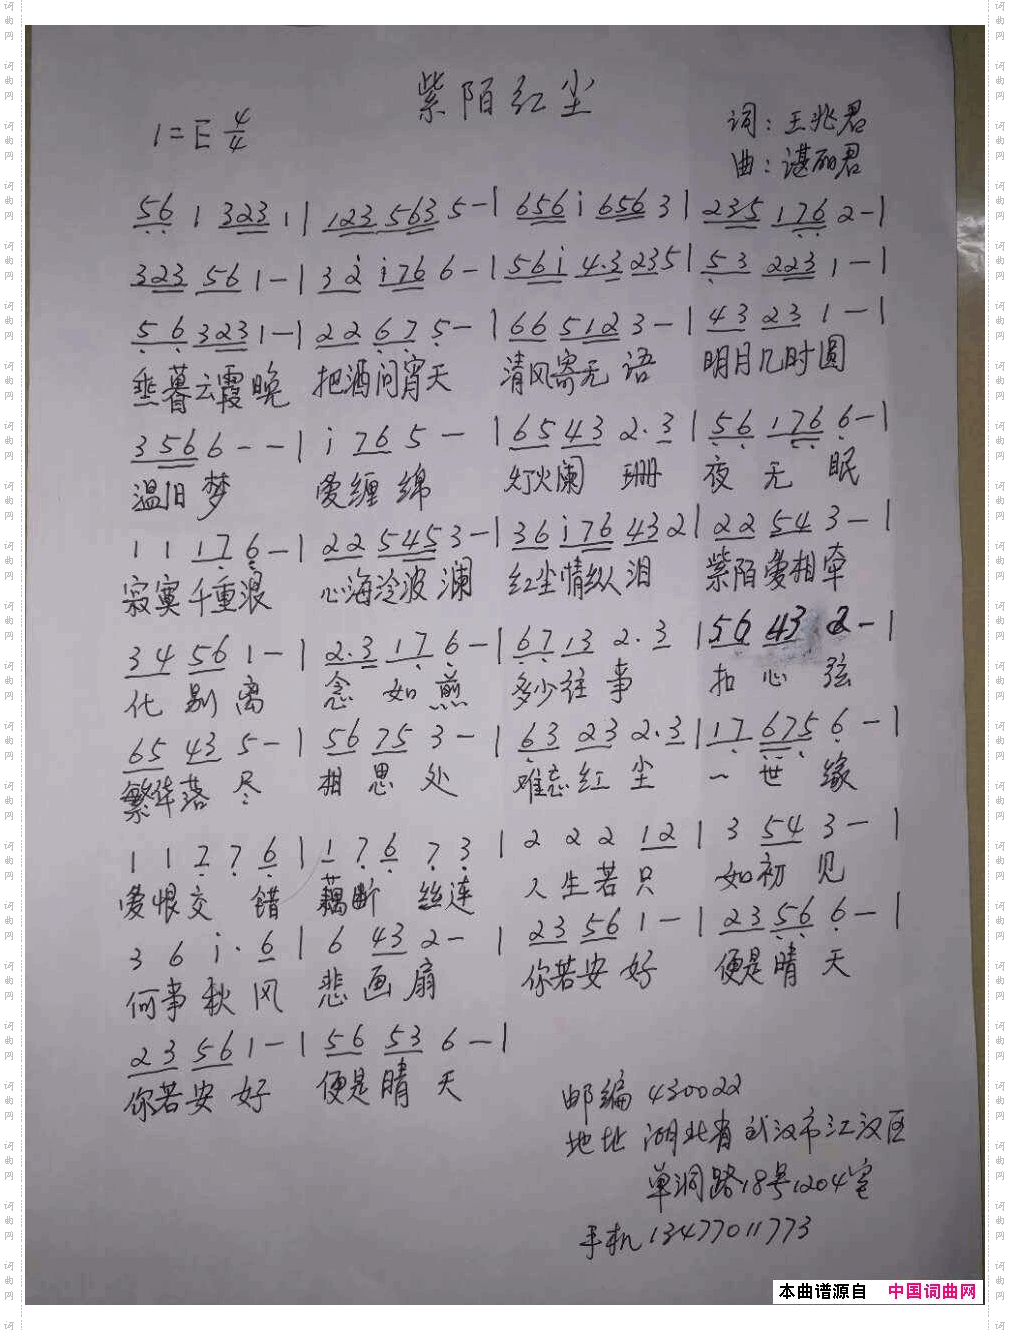 紫陌红尘
1=E 4/4
词：王兆君
曲：谌丽君
56 1 323 1 | 123 563 5 - | 656 i 656 3 | 235 176 2 - |
323 56 1 - | 3 2 i76 6 - | 56i 4·3 235 | 5 3 223 1 - |
5 6 323 1 - | 22 67 5 - | 66 512 3 - | 43 23 1 - |
垂暮云霞晚 把酒问宵天 清风寄无语 明月几时圆
3566 - - | i 76 5 - | 65 43 2·3 | 56 176 6 - |
温旧梦 爱缠绵 灯火阑珊 夜无眠
1 1 17 6 - | 22 545 3 - | 36 i76 432 | 22 54 3 - |
寂寞千重浪 心海泛波澜 红尘情纵泪 紫陌爱相牵
34 56 1 - | 2·3 17 6 - | 67 13 2·3 | 56 43 2 - |
化别离 念如煎 多少往事 扣心弦
65 43 5 - | 56 75 3 - | 63 23 2·3 | 17 675 6 - |
繁华落尽 相思处 难忘红尘 一世缘
1 1 7 7 6 | 1 7 6 7 3 | 2 2 2 12 | 3 54 3 - |
爱恨交错 藕断丝连 人生若只 如初见
3 6 i· 6 | 6 43 2 - | 23 56 1 - | 23 56 6 - |
何事秋风 悲画扇 你若安好 便是晴天
23 56 1 - | 56 53 6 - |
你若安好 便是晴天
邮编 430022
地址 湖北省武汉市江汉区
单洞路18号1204室
手机 13477011773
本曲谱源自 中国词曲网